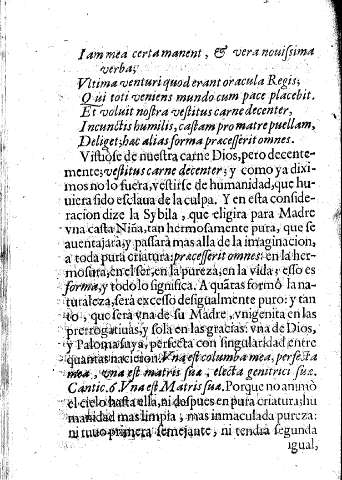 Iam mea certa manent, & vera nouissima
verba;
Vltima venturi quod erant oracula Regis;
Qui toti veniens mundo cum pace placebit.
Et voluit nostra vestitus carne decenter,
In cunctis humilis, castam pro matre puellam,
Deliget; hac alias forma præcesserit omnes.
Vistiose de nuestra carne Dios, pero decente-
mente; vestitus carne decenter; y como ya dixi-
mos no lo fuera, vestirse de humanidad, que hu-
uiera sido esclaua de la culpa. Y en esta conside-
racion dize la Sybila, que eligira para Madre
vna casta Niña, tan hermosamente pura, que se
auentajarà, y passarà mas alla de la imaginacion,
a toda pura criatura: præcesserit omnes: en la her-
mosura, en el ser, en la pureza, en la vida; esso es
forma, y todo lo significa. A quãtas formò la na-
turaleza, serà excesso desigualmente puro: y tan
to, que serà vna de su Madre, vnigenita en las
prerrogatiuas, y sola en las gracias: vna de Dios,
y Paloma suya, perfecta con singularidad entre
quantas nacieron. Vna est columba mea, perfecta
mea, vna est matris suæ, electa genitrici suæ.
Cantic. 6. Vna est Matris suæ. Porque no animò
el cielo hasta ella, ni despues en pura criatura; hu
manidad mas limpia, mas inmaculada pureza:
ni tuuo primera semejante, ni tendra segunda
igual,